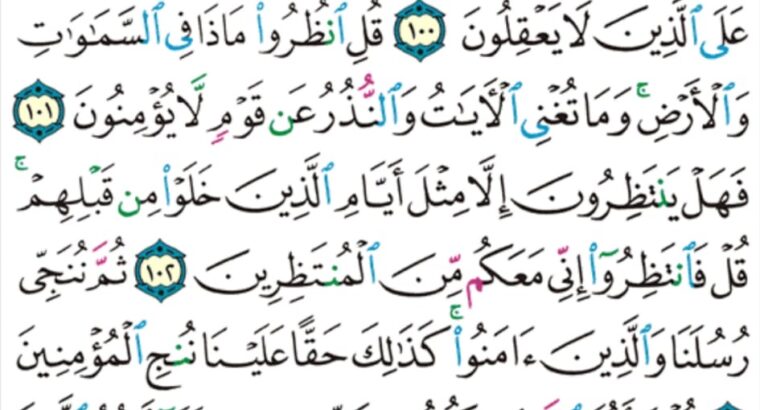 عَلَى ٱلَّذِينَ لَا يَعْقِلُونَ ١٠٠ قُلِ ٱنظُرُوا۟ مَاذَا فِى ٱلسَّمَٰوَٰتِ
وَٱلْأَرْضِ ۚ وَمَا تُغْنِى ٱلْءَايَٰتُ وَٱلنُّذُرُ عَن قَوْمٍ لَّا يُؤْمِنُونَ ١٠١
فَهَلْ يَنتَظِرُونَ إِلَّا مِثْلَ أَيَّامِ ٱلَّذِينَ خَلَوْا۟ مِن قَبْلِهِمْ ۚ
قُلْ فَٱنتَظِرُوٓا۟ إِنِّى مَعَكُم مِّنَ ٱلْمُنتَظِرِينَ ١٠٢ ثُمَّ نُنَجِّى
رُسُلَنَا وَٱلَّذِينَ ءَامَنُوا۟ ۚ كَذَٰلِكَ حَقًّا عَلَيْنَا نُنجِ ٱلْمُؤْمِنِينَ